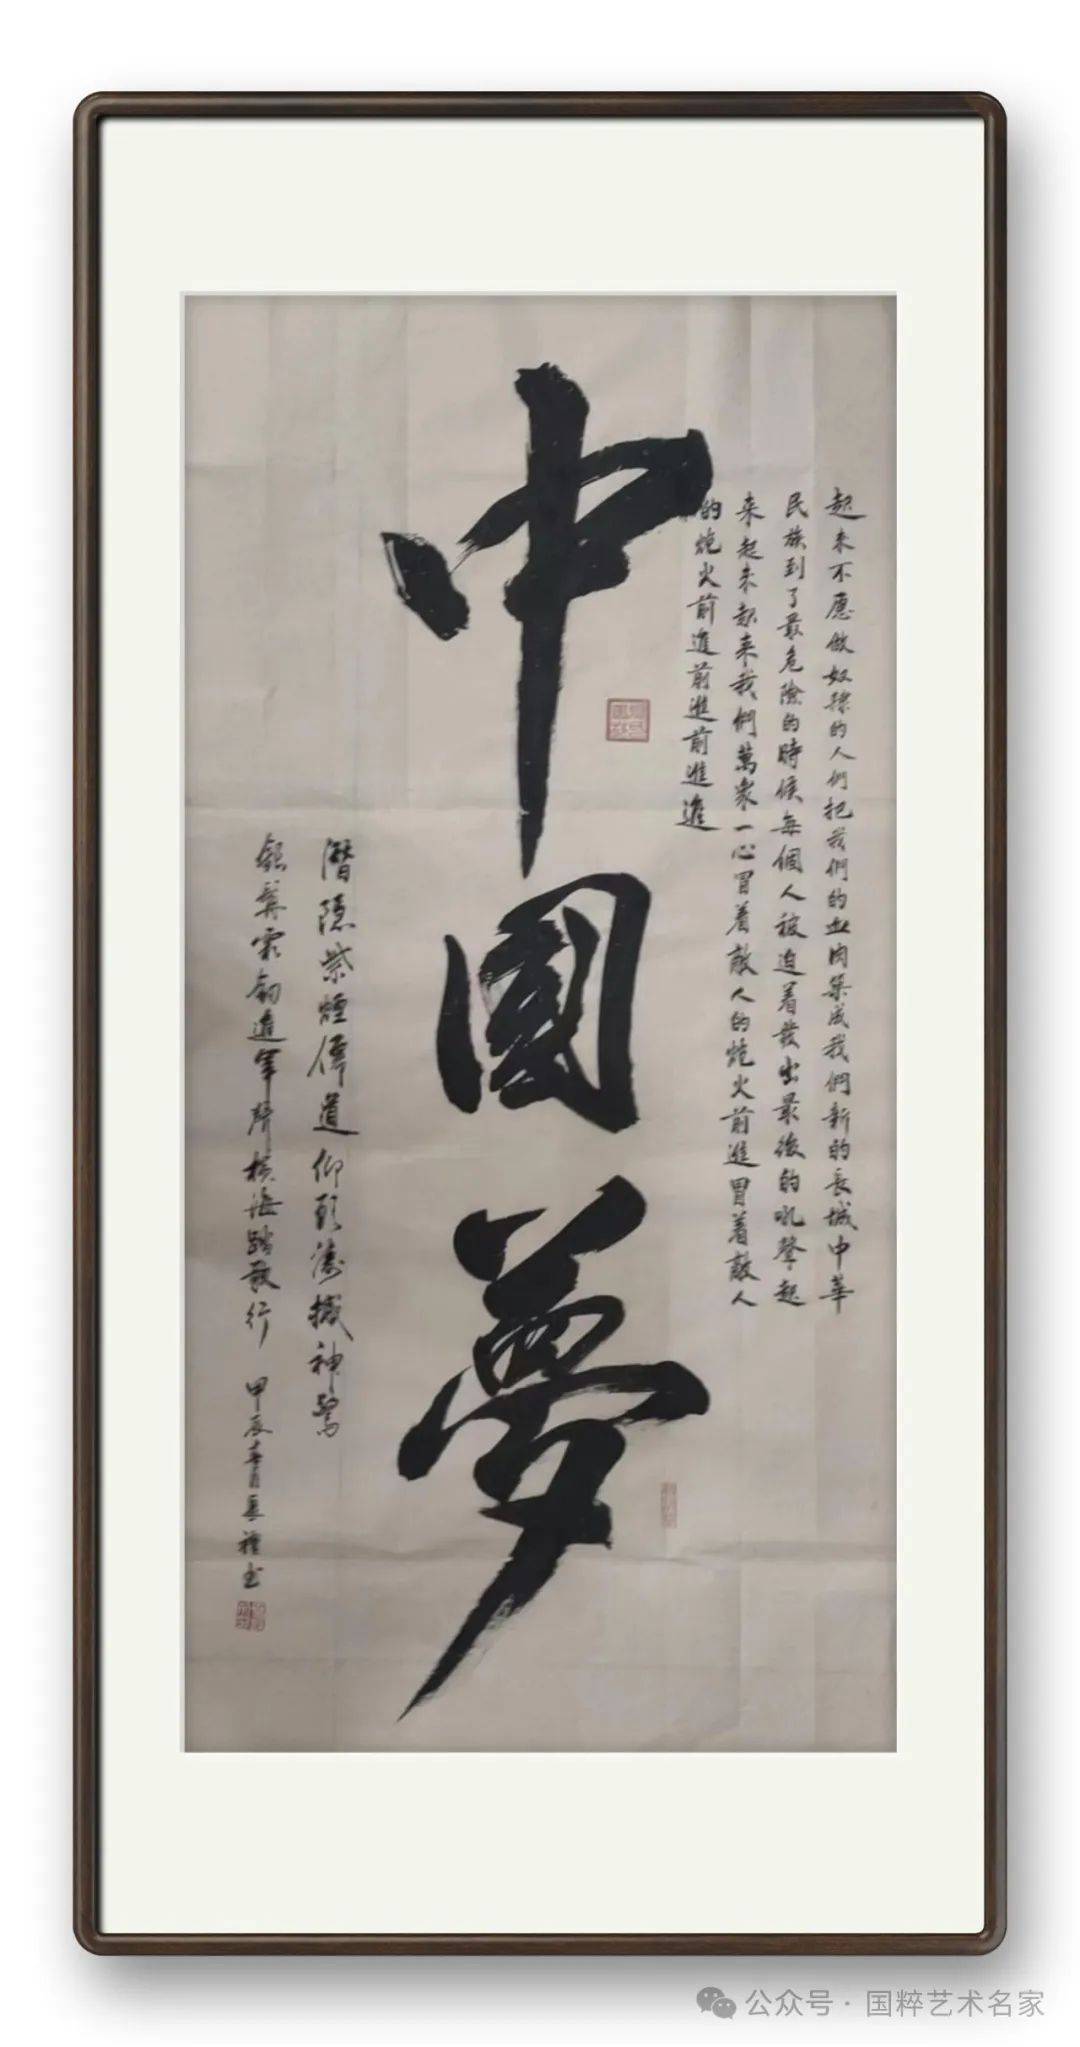 起来不愿做奴隸的人們把我們的血肉築成我們新的長城中華
民族到了最危險的時候每個人被迫着發出最後的吼聲起
来起来起来我們萬衆一心冒着敵人的炮火前進冒着敵人
的炮火前進前進前進進
中國夢
潛隱紫煙道仰濤撼神驚
霜劍進軍聲橫海踏歌行 甲辰春月長禮书
公众号 · 国粹艺术名家